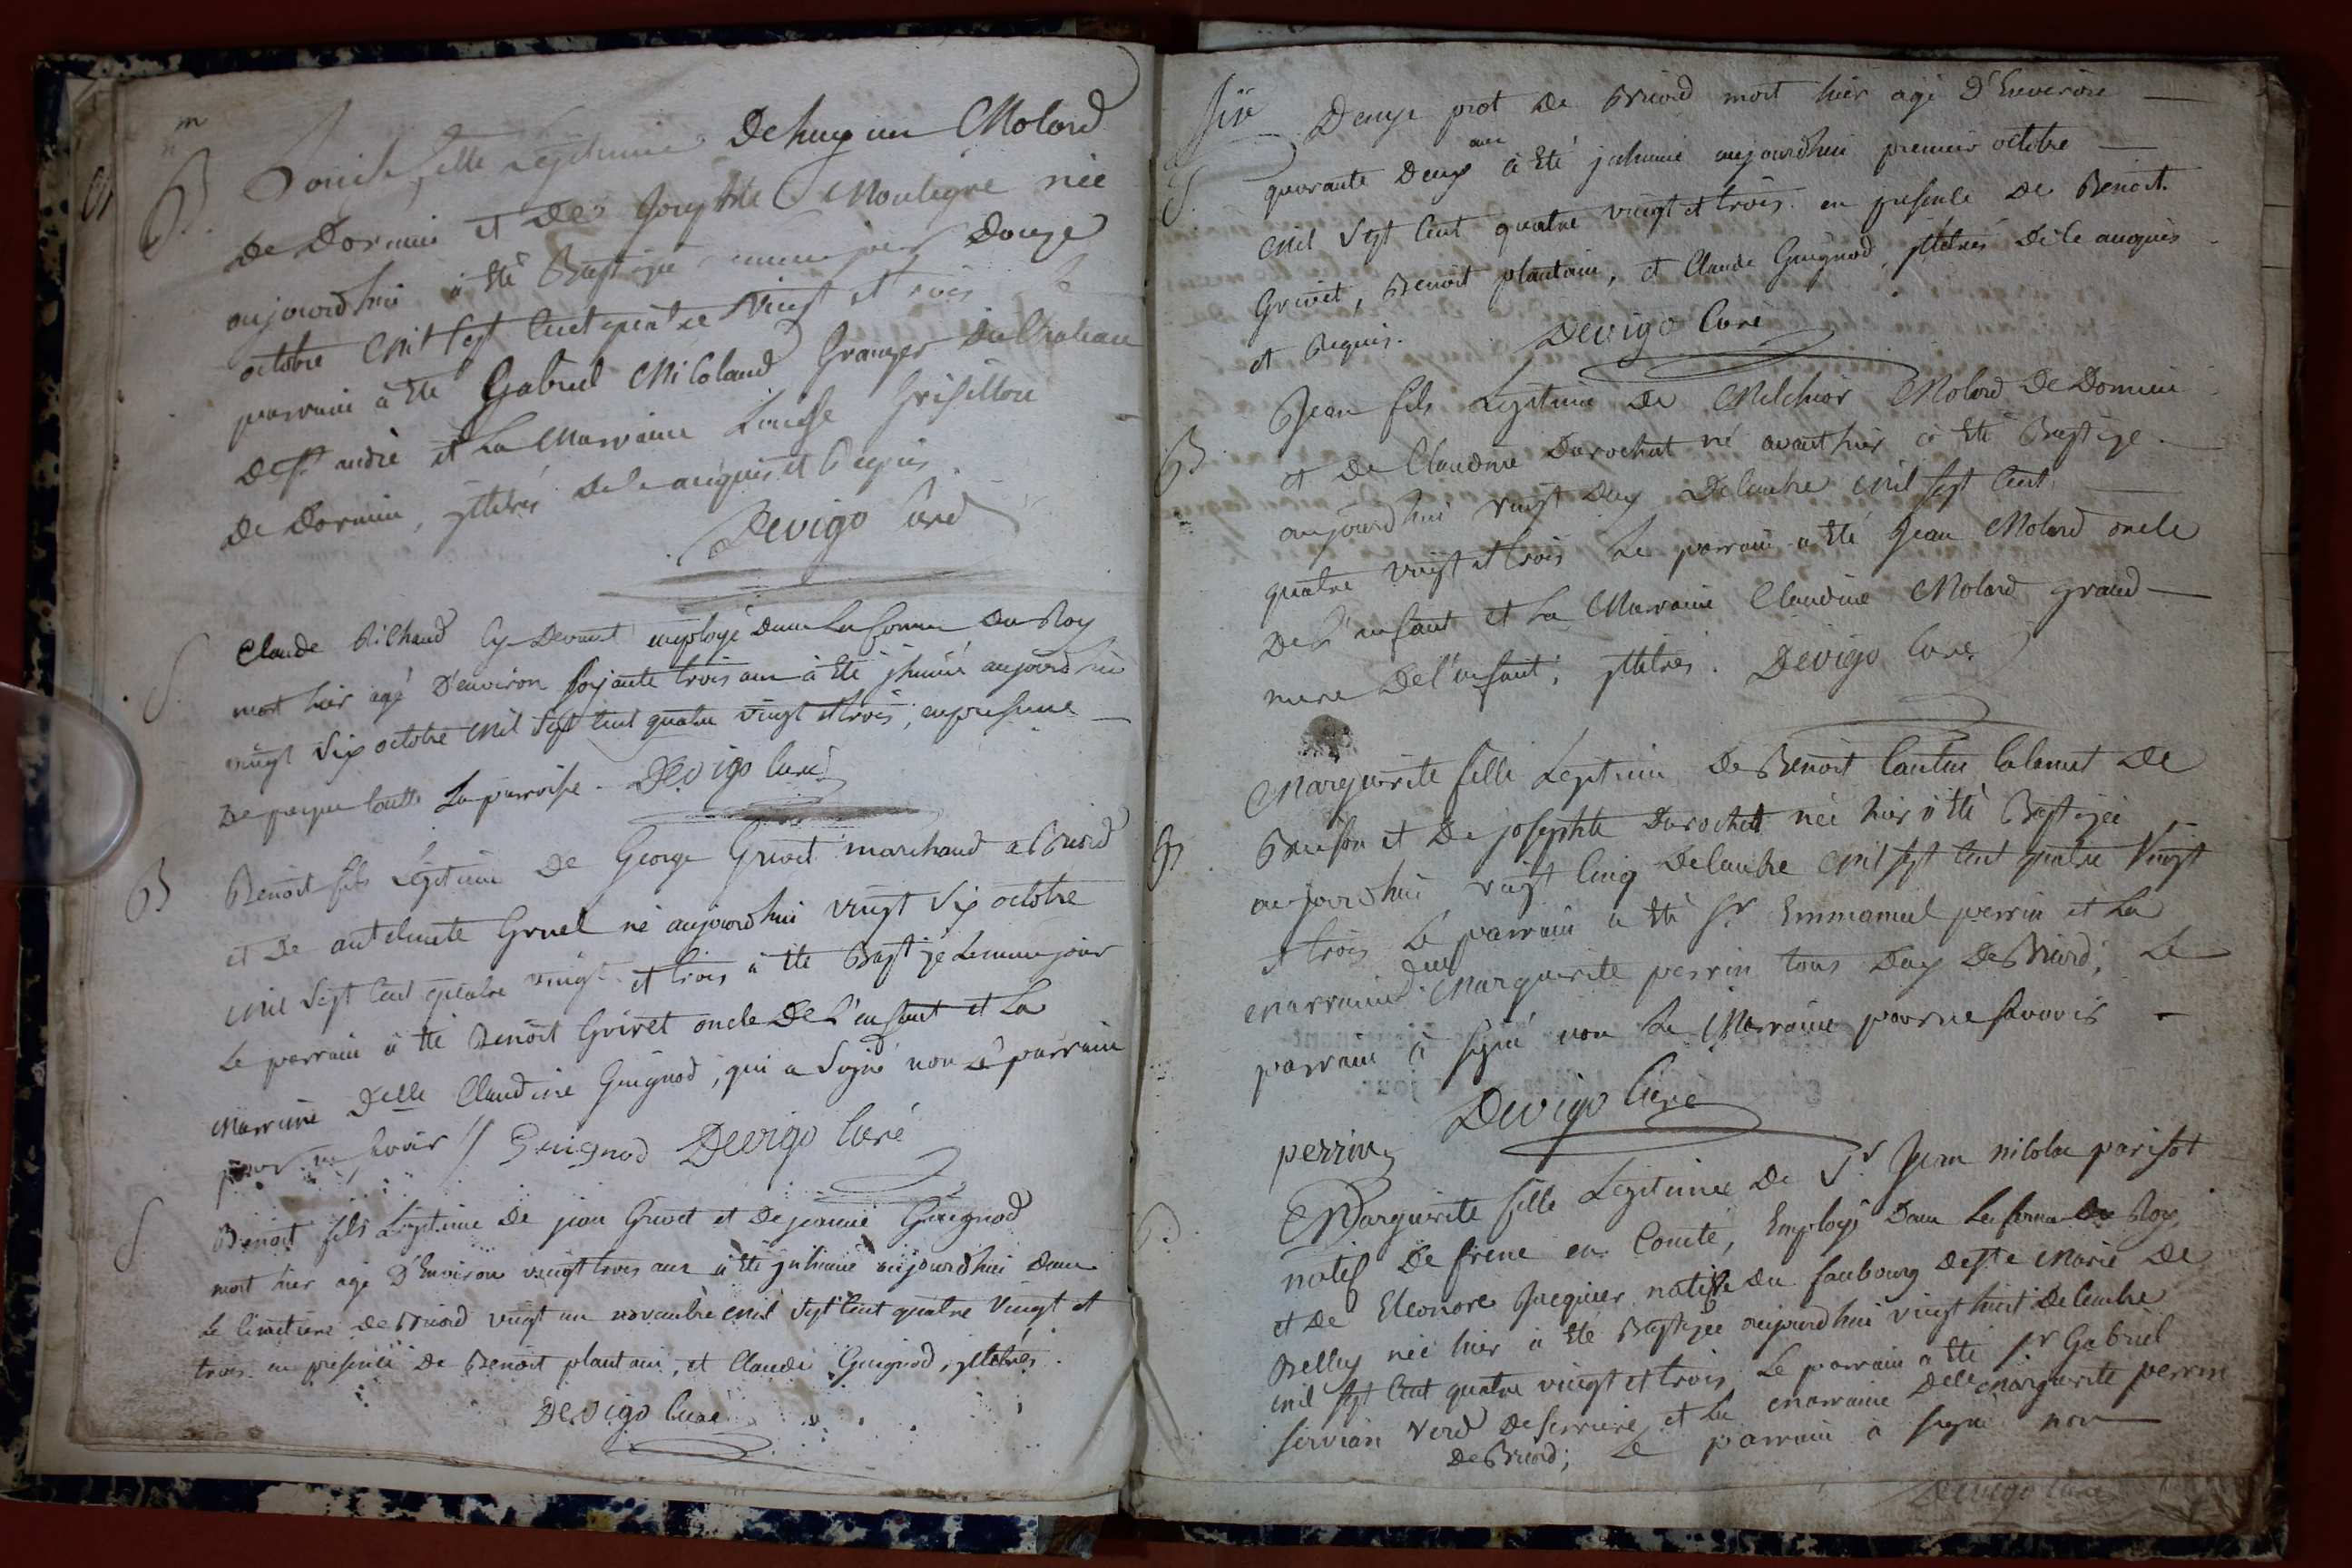 B
fille legitime De hugue Molard
De Dornieu et De Josephte Montegre née
aujourdhui à été Baptizée ce jour Douze
octobre mil sept cent quatre vingt et trois Le
parrain à été Gabriel Micoland Granger du Chateau
De st andré et La Marraine Louise Grisillon
De Dornieu, yllitrés de ce anquis et Requis.
Devigo Curé
S
Claude Richaud Cy Devant employé dans Les fermes Du Roy
mort hier agé D'environ soixante trois ans à été jhumé aujourdhui
vingt six octobre mil sept cent quatre vingt et trois, en presence
De presque toutte La parroisse. Devigo Curé
B
Benoit fils Legitime De George Grivet marchand a Briord
et De antelmete Gruel né aujourdhui vingt six octobre
mil sept cent quatre vingt et trois à été Baptizé Le meme jour
Le parrain à été Benoit Grivet oncle De L'enfant et La
Marraine Delle Claudine Guignod, qui a Signé non Le parrain
pour ne savoir // Guignod Devigo Curé
S
Benoit fils Legitime De jean Grivet et De jeanne Guignod
mort hier agé D'Environ vingt trois ans à été jnhumé aujourdhui Dans
Le Cimetiere De Briord vingt un novembre mil sept cent quatre vingt et
trois en presence De Benoit plantain, et Claude Guignod, yllitrés.
Devigo Curé
S
Denys prot De Briord mort hier agé D'Environ
quarante Deux ans à Eté jnhumé aujourdhui premier octobre
mil Sept Cent quatre vingt et trois en presence De Benoit
Grivet, Benoit plantain, et Claude Guignod, yllitrés De Ce anquis
et Requis. Devigo Curé
B
Jean fils Legitime De Melchior Molard De Dornieu
et De Claudine Durochat né avanthier à été Baptizé
aujourdhui vingt Deux Decembre mil sept Cent
quatre vingt et trois Le parrain à été Jean Molard oncle
De L'enfant et La Marraine Claudine Molard grand
mere De l'enfant, yllitrés. Devigo Curé
B
Marguerite fille Legitime De Benoit Cantin Calamet De
et De josephte Durochat née hier à été Baptizée
aujourdhui vingt Cinq Decembre mil sept Cent quatre Vingt
et trois Le parrain a été Sr Emmanuel perrin et La
marraine Dlle Marguerite perrin tous Deux De Briord; Le
parrain à signé non La Marraine pour ne Savoir
perrin Devigo Curé
B
Marguerite fille Legitime De Sr Jean nicolas parisot
natif De frene en Comté, Employé Dans Les fermes Du Roy
et De Eleonore Jacquier native Du faubourg De ste Marie De
Belley née hier à été Baptizée aujourdhui vingt huit Decembre
mil sept Cent quatre vingt et trois Le parrain a été Sr Gabriel
servian Verd De serriere, et La marraine Delle Marguerite perrin
De Briord; Le parrain a signé non
Devigo Curé